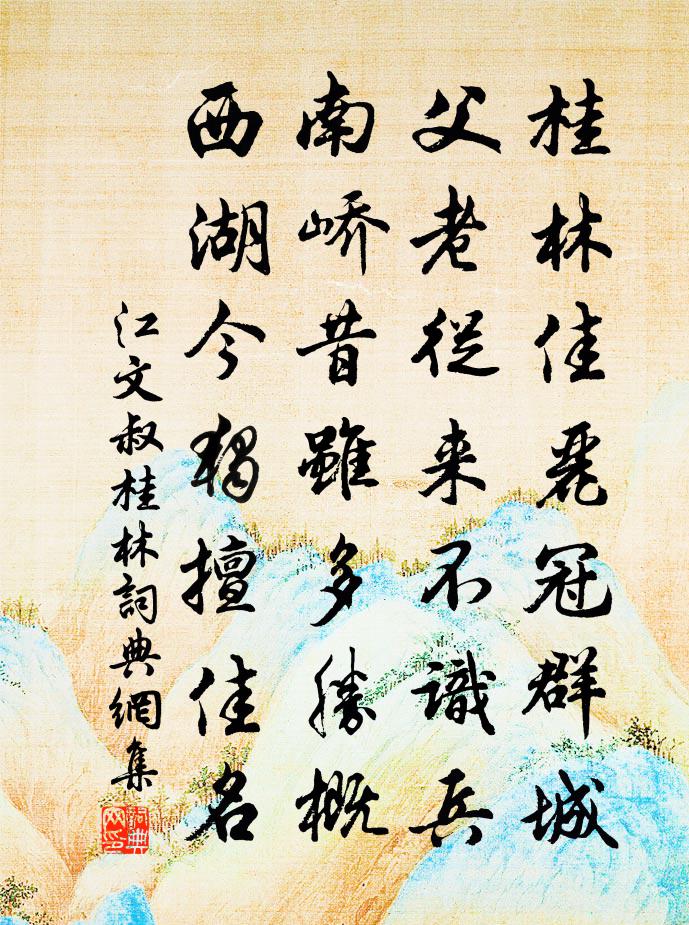 桂林佳麗冠群城
父老從来不識兵
南嶠昔雖多勝概
西湖今獨擅佳名
江文叔桂林詞典網集
詞典網印